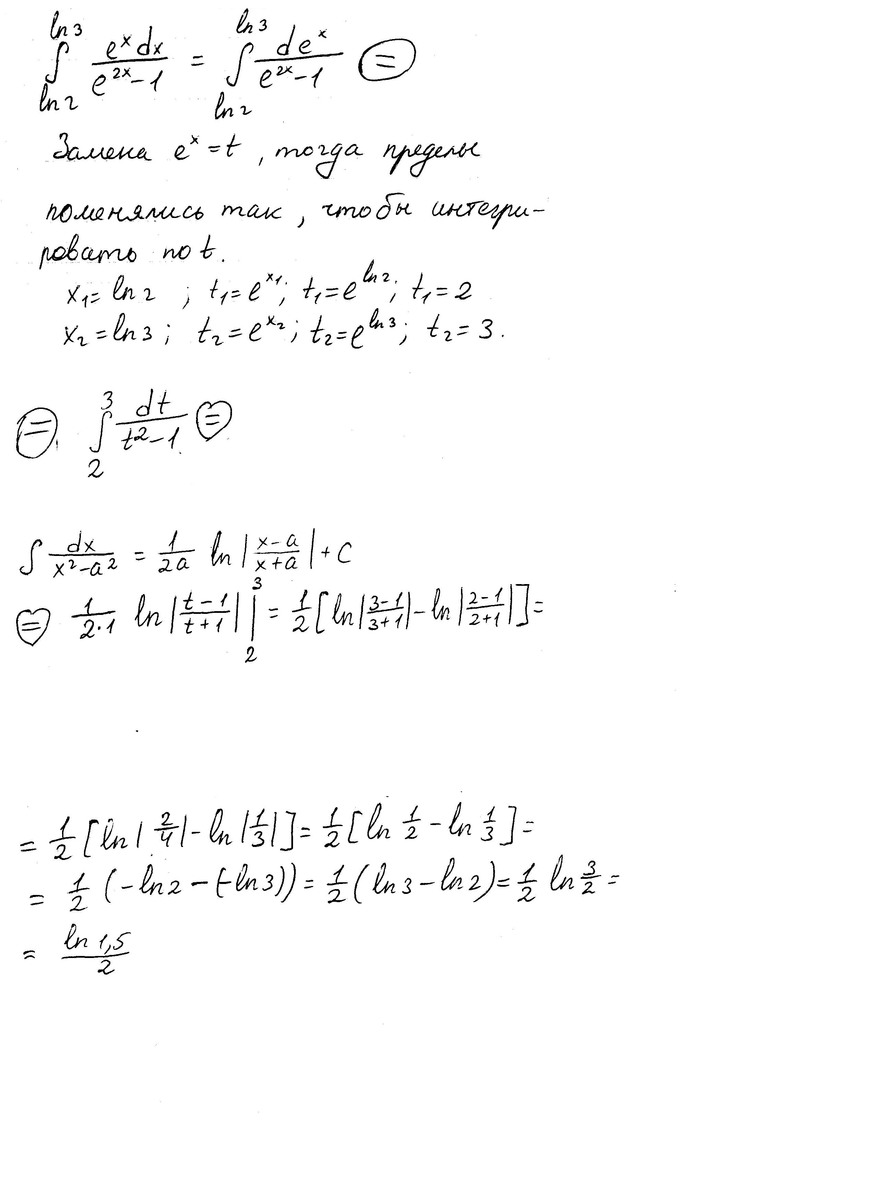 ∫_{ln2}^{ln3} e^x dx / (e^{2x} − 1) = ∫_{ln2}^{ln3} de^x / (e^{2x} − 1) (=)
Замена e^x = t , тогда пределы
поменялись так, чтобы интегри-
ровать по t.
x₁ = ln2 ; t₁ = e^{x₁}; t₁ = e^{ln2}; t₁ = 2
x₂ = ln3 ; t₂ = e^{x₂}; t₂ = e^{ln3}; t₂ = 3.
(=) ∫_2^3 dt / (t² − 1) (=)
∫ dx / (x² − a²) = 1/(2a) ln |(x−a)/(x+a)| + C
(=) 1/(2·1) ln |(t−1)/(t+1)| |_2^3 = 1/2 [ln |(3−1)/(3+1)| − ln |(2−1)/(2+1)|] =
= 1/2 [ln |2/4| − ln |1/3|] = 1/2 [ln 1/2 − ln 1/3] =
= 1/2 (−ln2 − (−ln3)) = 1/2 (ln3 − ln2) = 1/2 ln 3/2 =
= ln 1,5 / 2